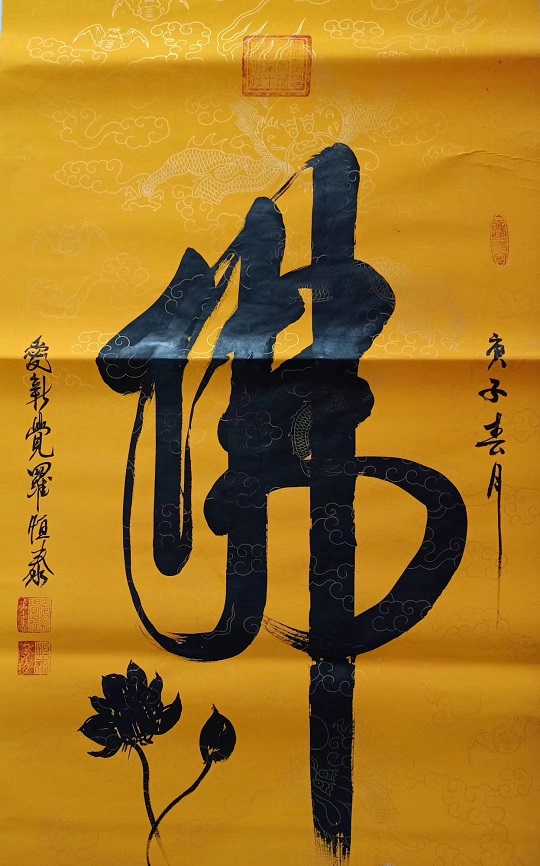 庚子春月
佛
愛新覺羅恒泰